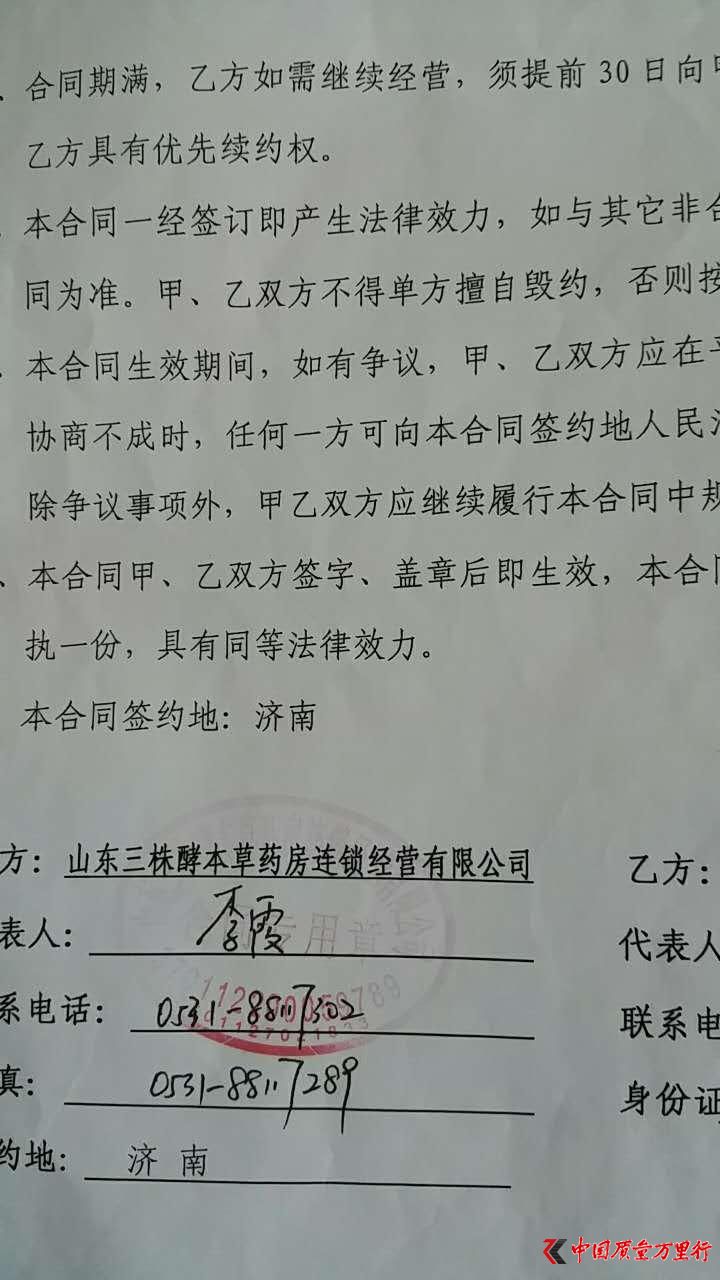 、合同期满，乙方如需继续经营，须提前 30 日向甲
乙方具有优先续约权。
本合同一经签订即产生法律效力，如与其它非合
同为准。甲、乙双方不得单方擅自毁约，否则按
本合同生效期间，如有争议，甲、乙双方应在平
协商不成时，任何一方可向本合同签约地人民法
除争议事项外，甲乙双方应继续履行本合同中规
、本合同甲、乙双方签字、盖章后即生效，本合同
执一份，具有同等法律效力。
本合同签约地：济南
方：山东三株酵本草药房连锁经营有限公司 乙方：
表人：李霞 代表人
专用章
系电话：0531-88117302 联系电
真：0531-88117289 身份证
约地：济南
中国质量万里行